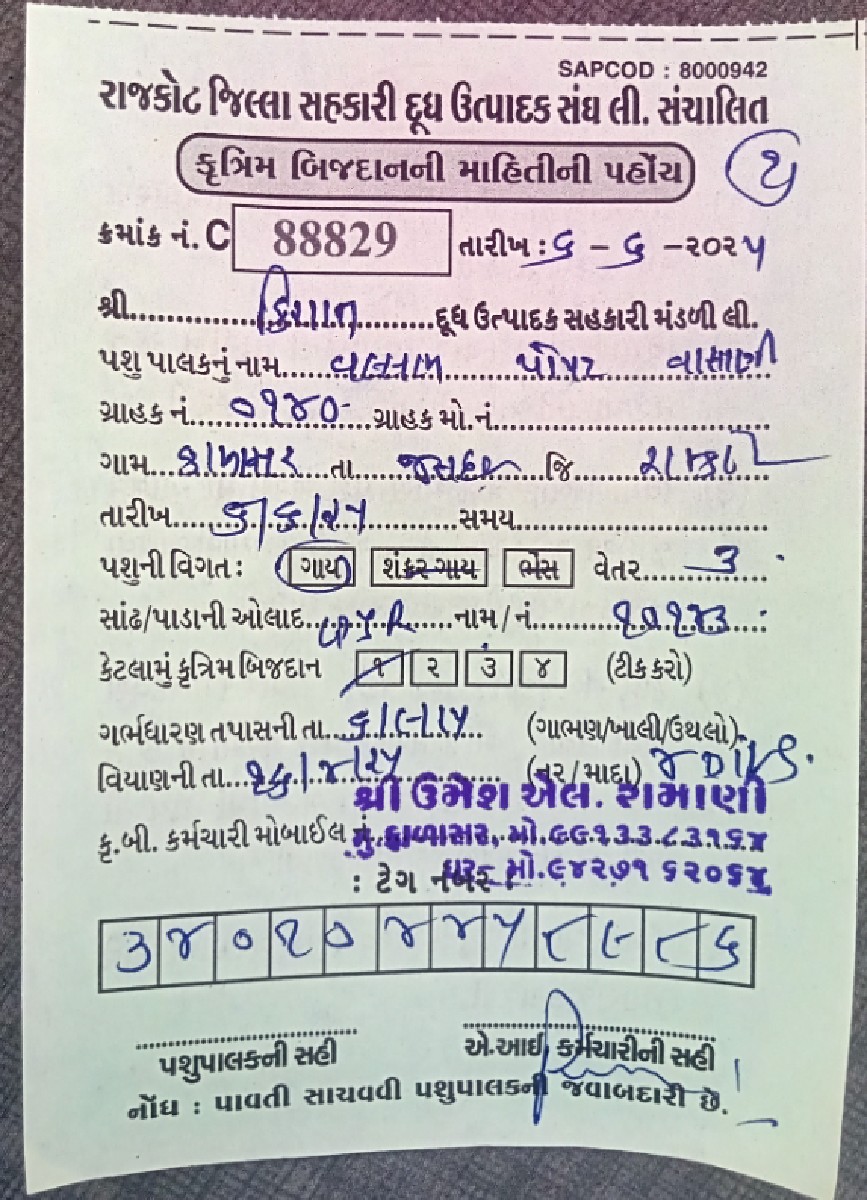 SAPCOD : 8000942
રાજકોટ જિલ્લા સહકારી દૂધ ઉત્પાદક સંઘ લી. સંચાલિત
કૃત્રિમ બિજદાનની માહિતીની પહોંચ
ક્રમાંક નં. C 88829 તારીખ : ૬ - ૬ - ૨૦૨૫
શ્રી..............કિશાન..........દૂધ ઉત્પાદક સહકારી મંડળી લી.
પશુ પાલકનું નામ.................. પોપટ વાસાણી
ગ્રાહક નં....૦૧૪૦.......ગ્રાહક મો.નં..............................
ગામ.............તા....જસદણ....જિ..............
તારીખ.....૬/૬/૨૫..........સમય..............................
પશુની વિગત : ગાય શંકર ગાય ભેંસ વેતર....૩....
સાંઢ/પાડાની ઓલાદ..............નામ/નં.........૧૦૧૪૩....
કેટલામું કૃત્રિમ બિજદાન ૧ ૨ ૩ ૪ (ટીક કરો)
ગર્ભધારણ તપાસની તા................ (ગાભણ/ખાલી/ઉથલો)
વિયાણની તા.................. (નર/માદા)
શ્રી ઉમેશ એલ. રામાણી
કૃ.બી. કર્મચારી મોબાઈલ નં. મુ. કાળાસર, મો.૯૯૧૩૩૮૩૧૬૪
ઘર મો.૯૪૨૭૧ ૬૨૦૬૪
: ટેગ નંબર :
૩ ૪ ૦ ૧ ૦ ૪ ૪ ૫ ૮ ૯ ૮ ૬
પશુપાલકની સહી એ.આઈ. કર્મચારીની સહી
નોંધ : પાવતી સાચવવી પશુપાલકની જવાબદારી છે.